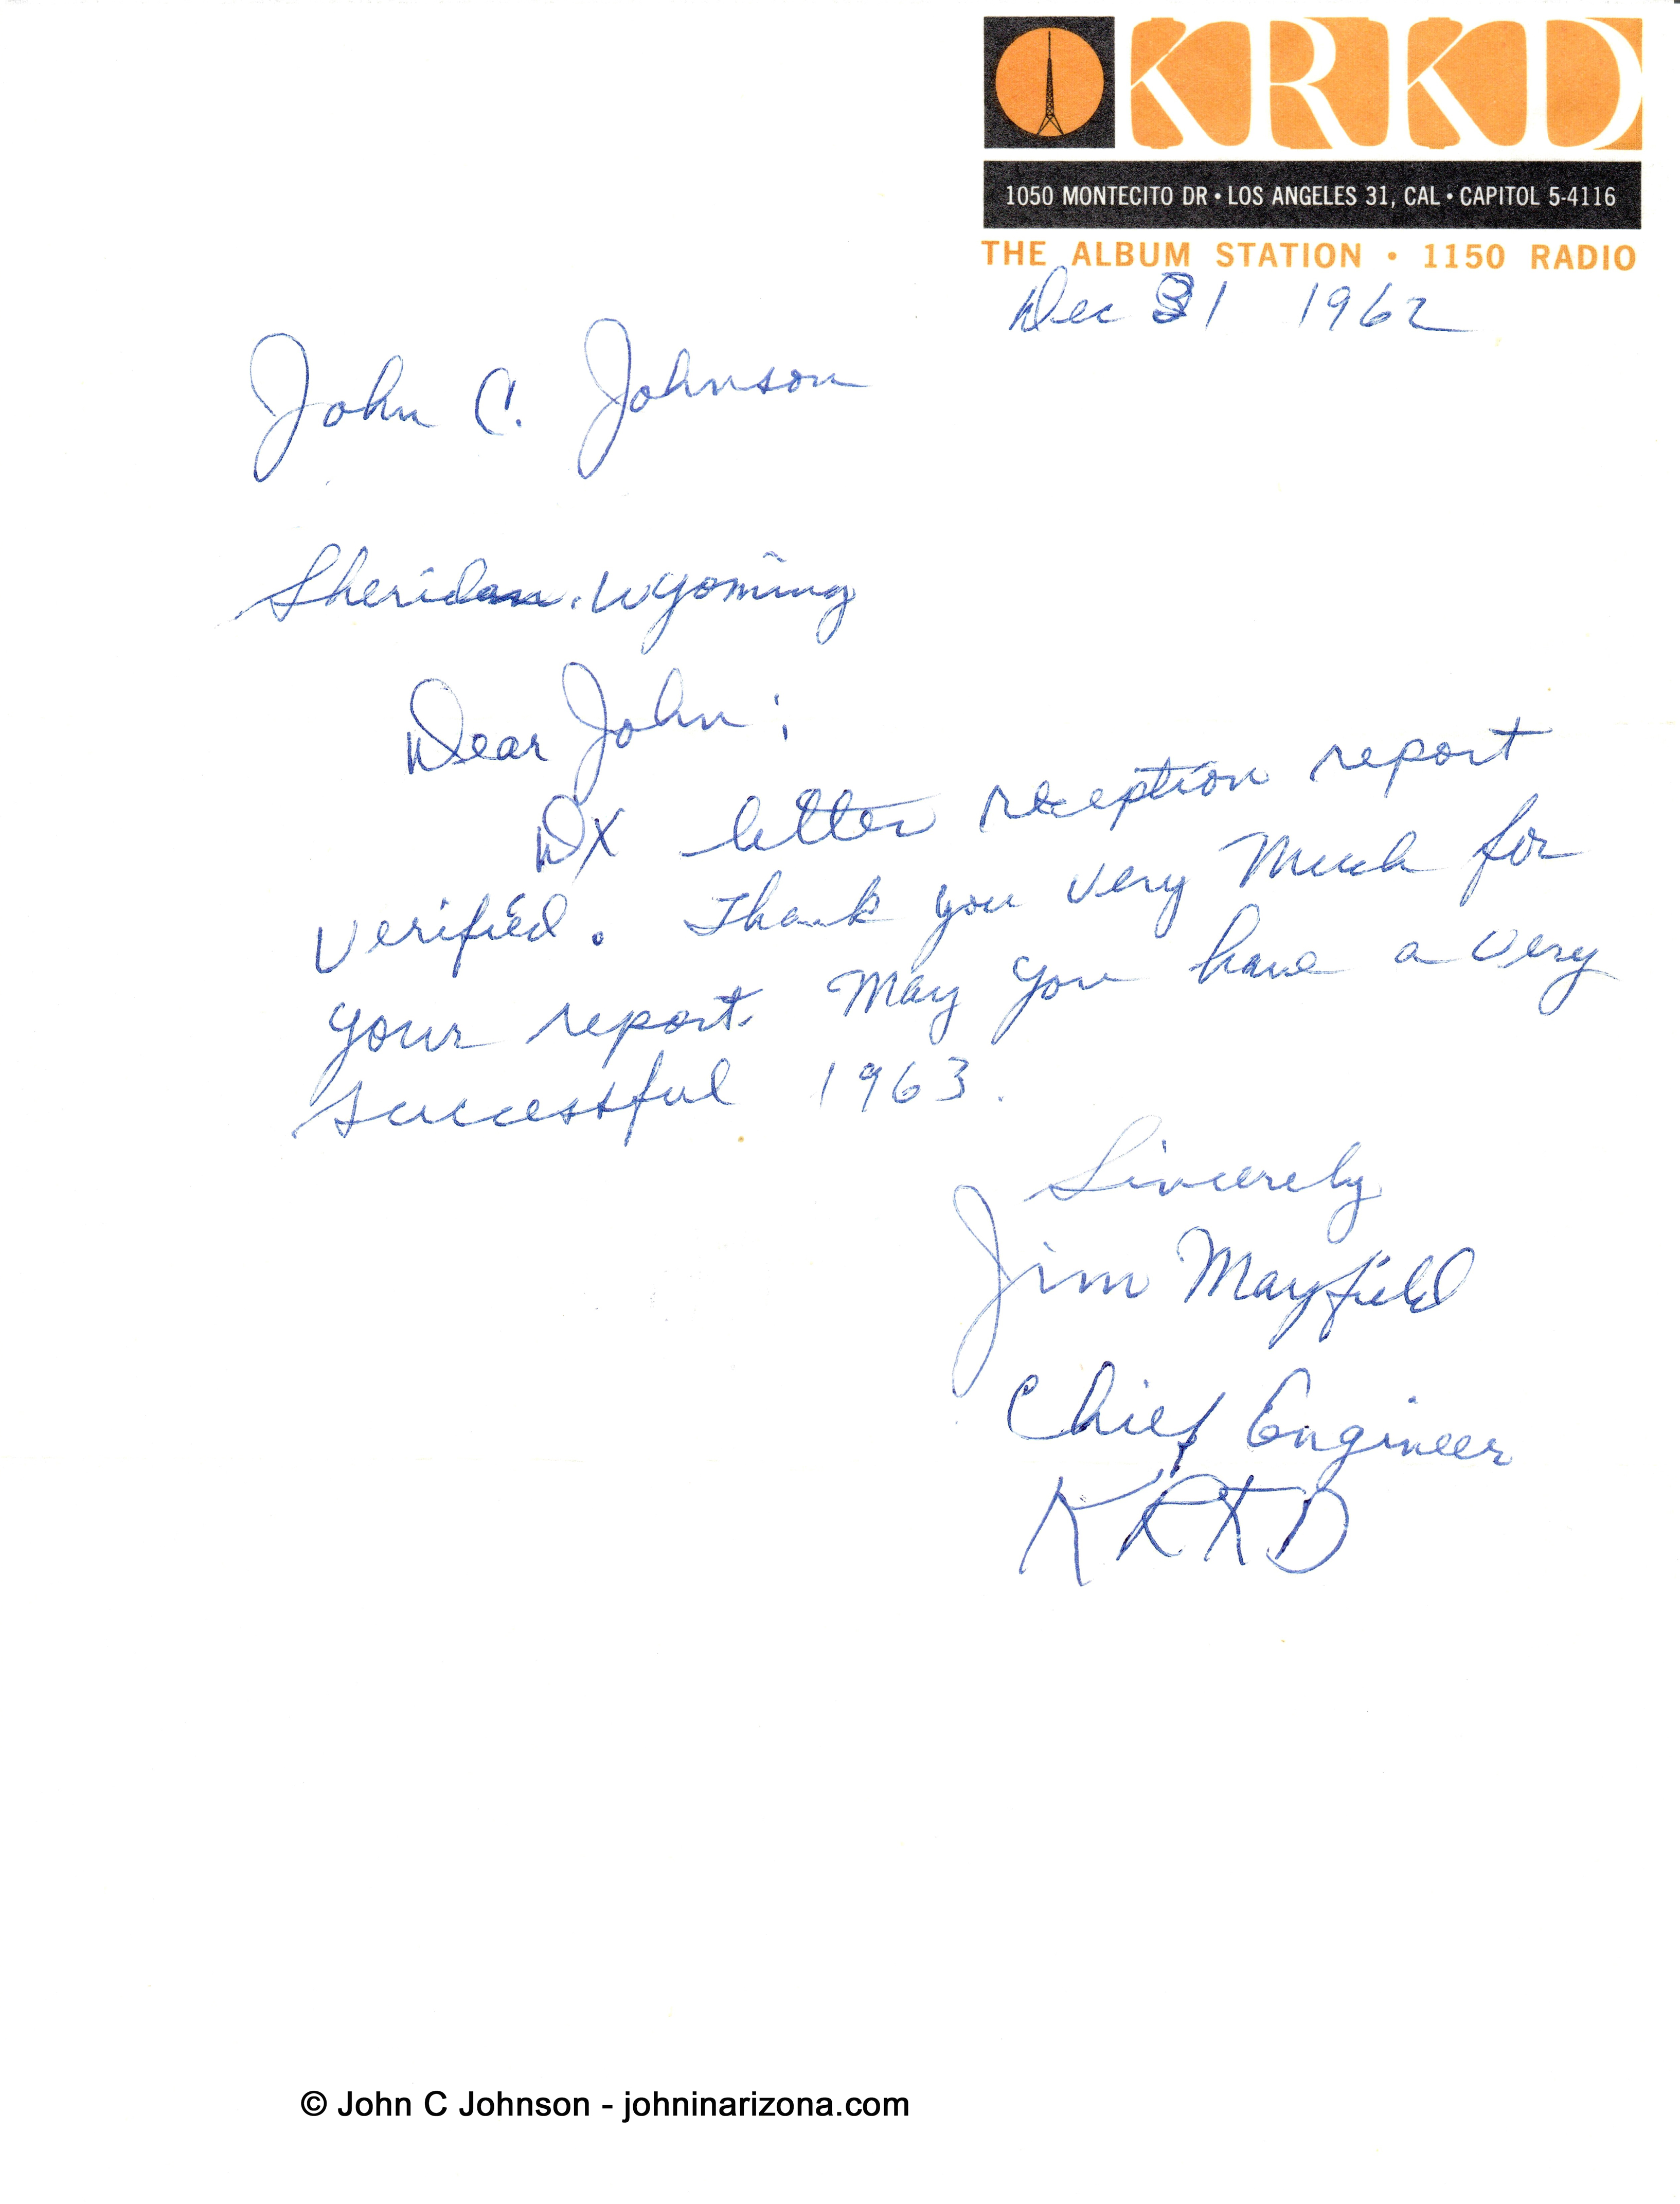 KRKD
1050 MONTECITO DR • LOS ANGELES 31, CAL • CAPITOL 5-4116
THE ALBUM STATION • 1150 RADIO
Dec 31 1962
John C. Johnson
Sheridan, Wyoming
Dear John:
DX letter reception report
verified. Thank you very Much for
your report. May you have a very
successful 1963.
Sincerely
Jim Mayfield
Chief Engineer
KRKD
© John C Johnson - johninarizona.com